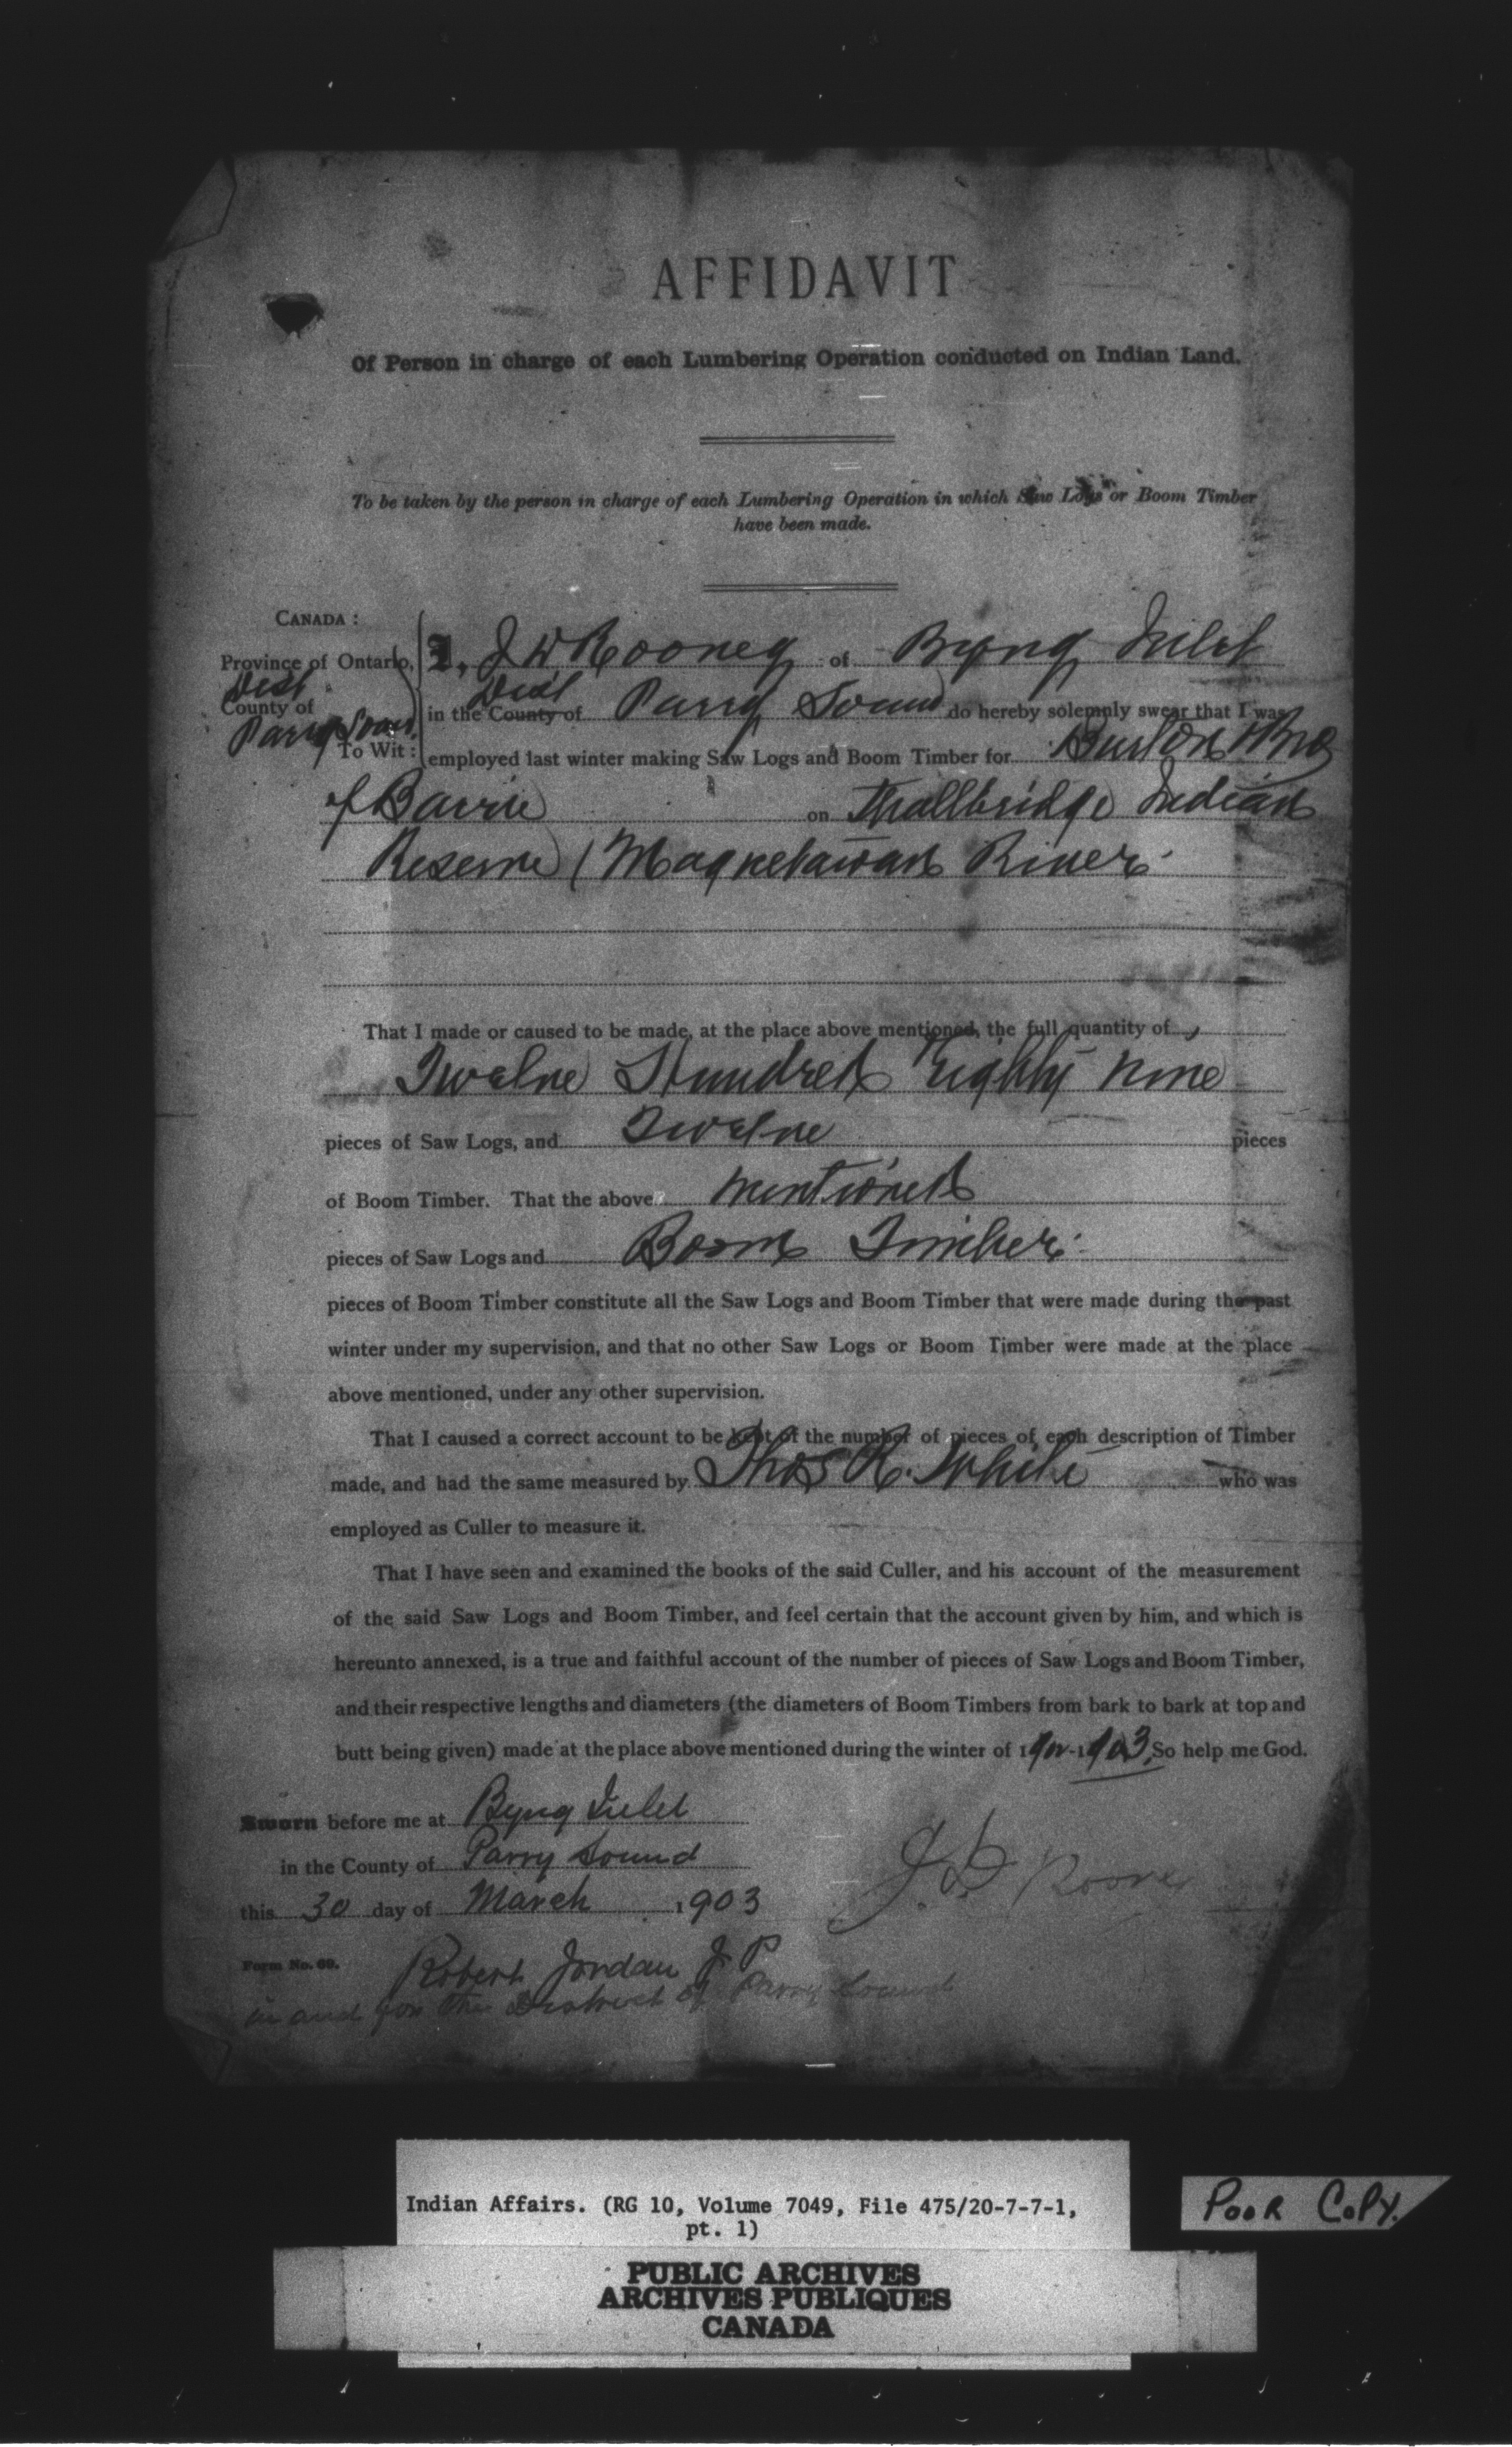 AFFIDAVIT
Of Person in charge of each Lumbering Operation conducted on Indian Land.
To be taken by the person in charge of each Lumbering Operation in which Saw Logs or Boom Timber
have been made.
CANADA :
Province of Ontario,
Dist
County of
Parry Sound
To Wit :
I, J W Rooney of Byng Inlet
Dist
in the County of Parry Sound do hereby solemnly swear that I was
employed last winter making Saw Logs and Boom Timber for Burton Bro
of Barrie on Indian
Reserve ( Magnetawan River
That I made or caused to be made, at the place above mentioned, the full quantity of
Twelve Hundred Eighty Nine
pieces of Saw Logs, and Twelve pieces
of Boom Timber. That the above mentioned
pieces of Saw Logs and Boom Timber
pieces of Boom Timber constitute all the Saw Logs and Boom Timber that were made during the past
winter under my supervision, and that no other Saw Logs or Boom Timber were made at the place
above mentioned, under any other supervision.
That I caused a correct account to be kept of the number of pieces of each description of Timber
made, and had the same measured by Thos R. White who was
employed as Culler to measure it.
That I have seen and examined the books of the said Culler, and his account of the measurement
of the said Saw Logs and Boom Timber, and feel certain that the account given by him, and which is
hereunto annexed, is a true and faithful account of the number of pieces of Saw Logs and Boom Timber,
and their respective lengths and diameters (the diameters of Boom Timbers from bark to bark at top and
butt being given) made at the place above mentioned during the winter of 1902-1903, So help me God.
Sworn before me at Byng Inlet
in the County of Parry Sound
this 30 day of March 1903
J. D Rooney
Form No. 60.
Robert Jordan J P
in and for the District of Parry Sound
Indian Affairs. (RG 10, Volume 7049, File 475/20-7-7-1,
pt. 1)
POOR COPY.
PUBLIC ARCHIVES
ARCHIVES PUBLIQUES
CANADA